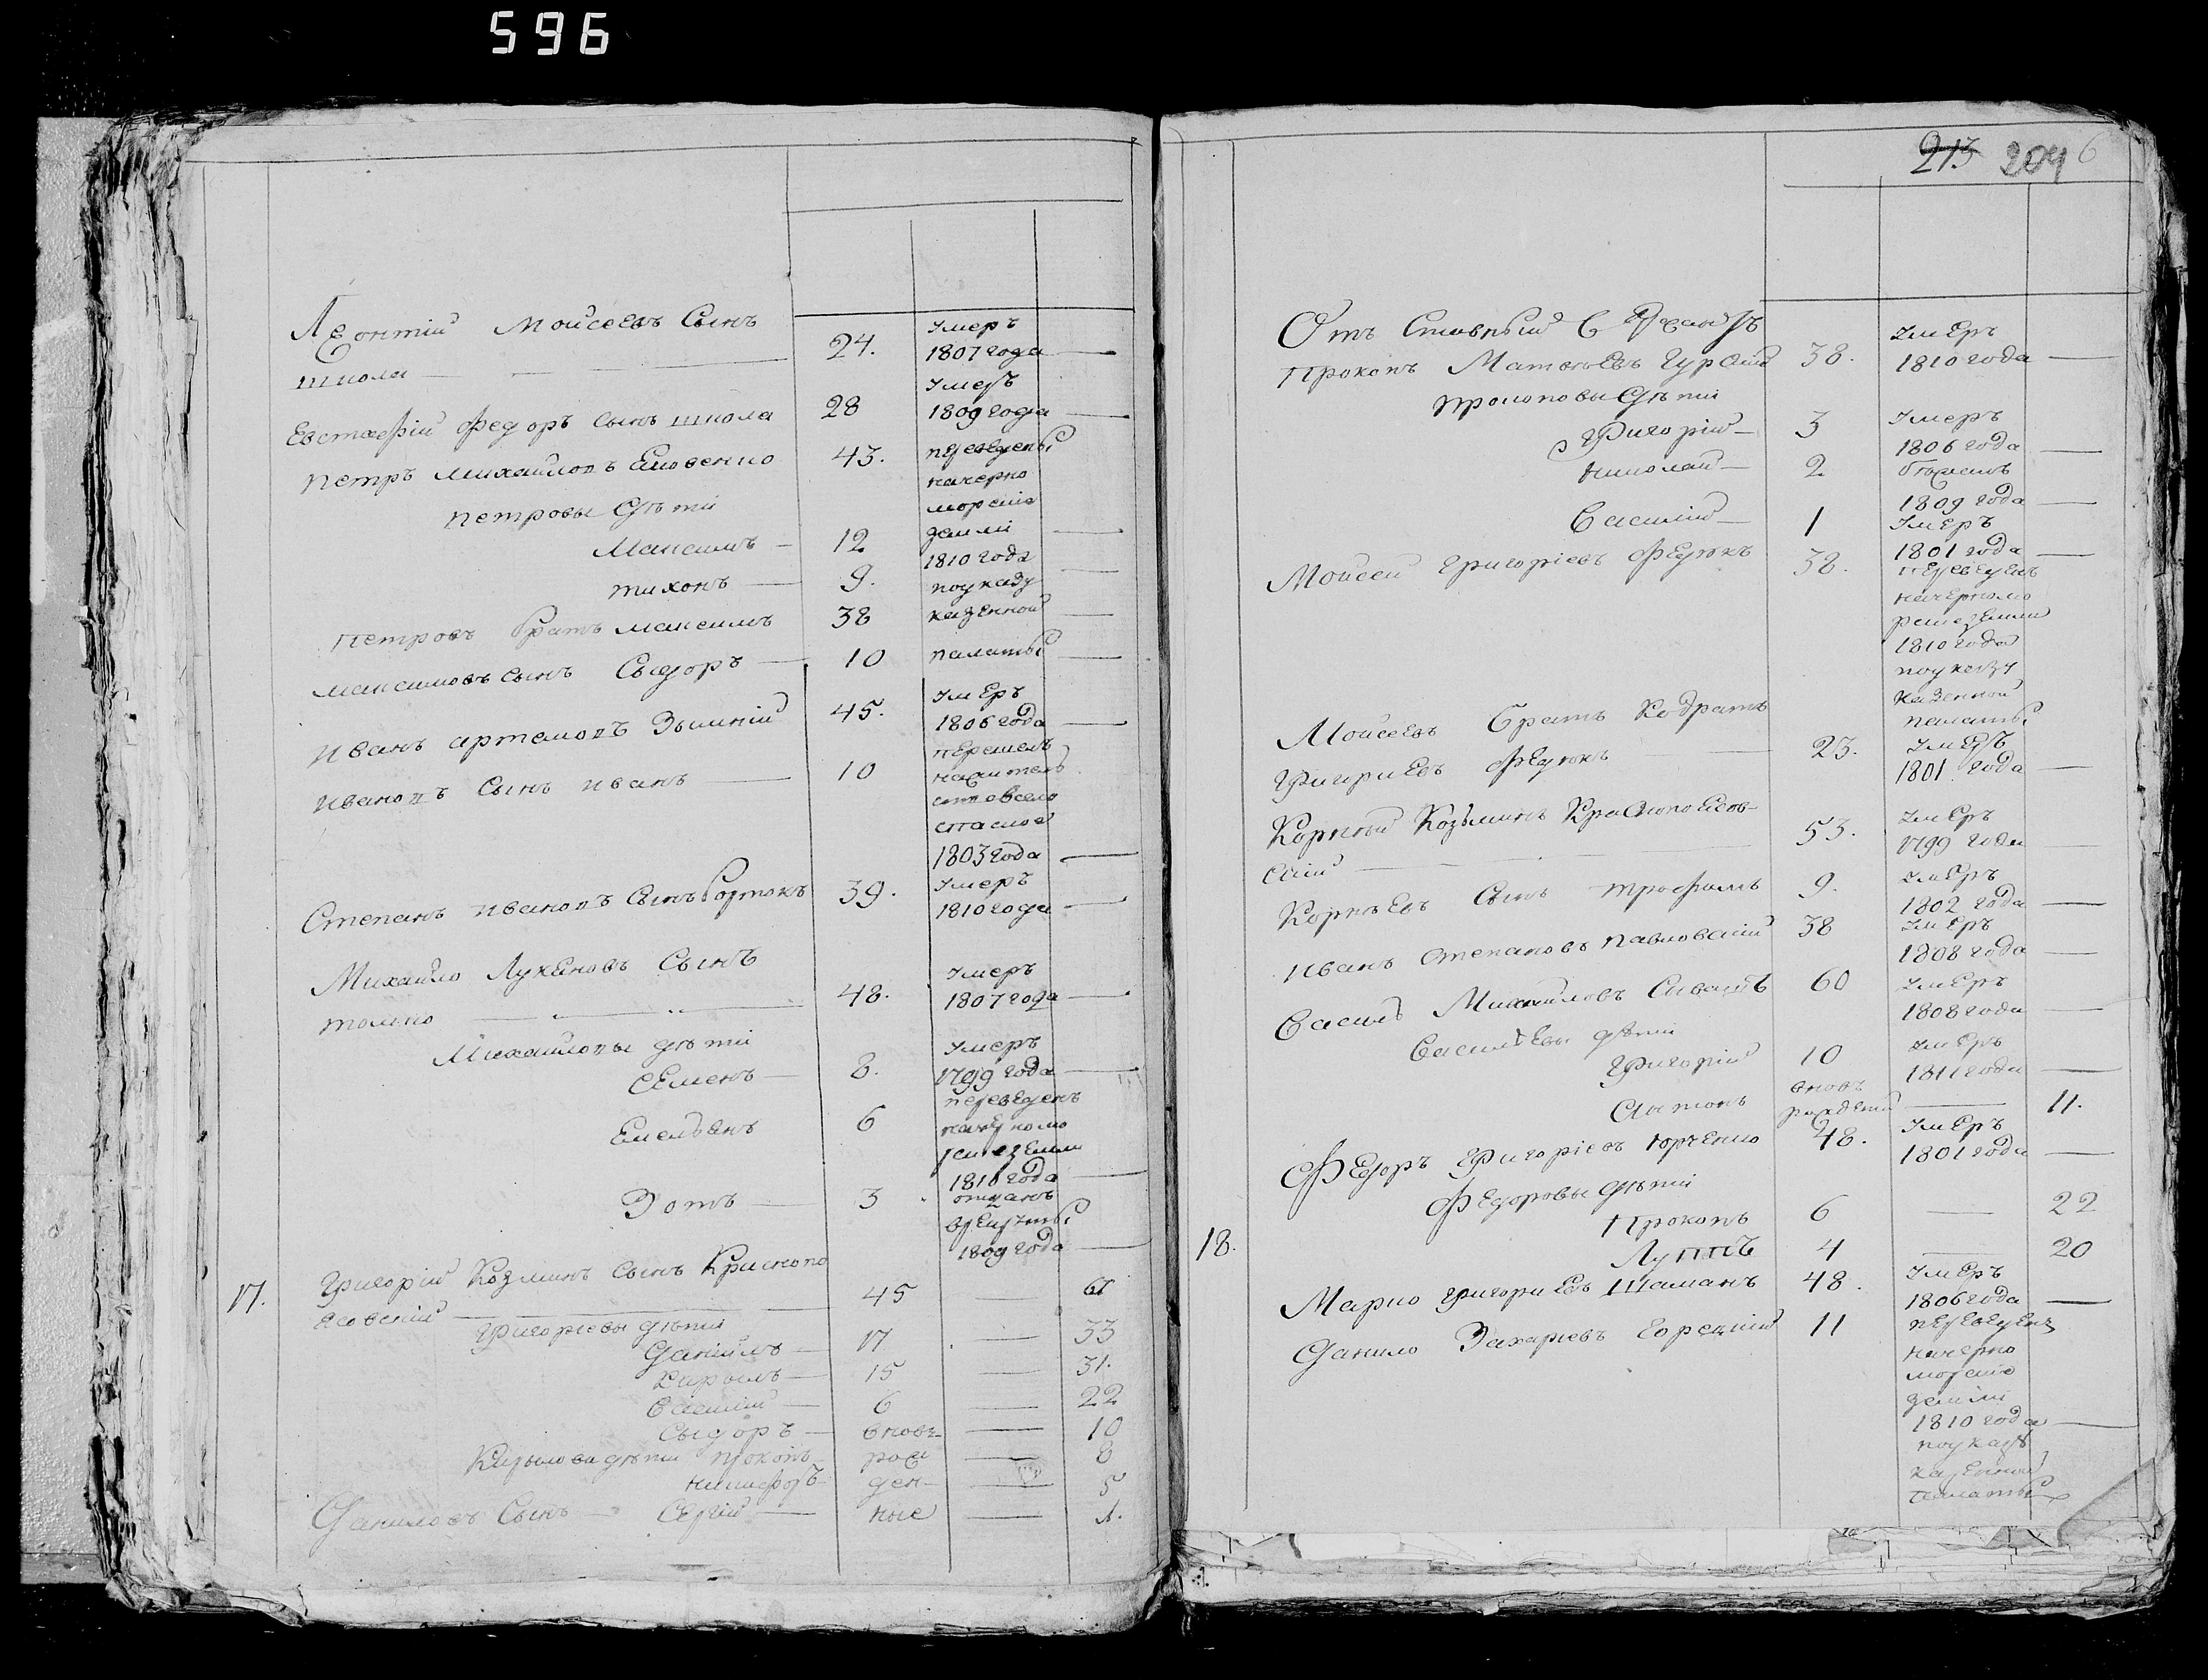 596
Леонтій Моисеевъ Сынъ
Школа — 24. Умеръ 1807 года —
Евстафій Федоръ сынъ школа 28 Умеръ 1809 года —
Петръ михаилопъ 43. переведены
начерно
Петровы Дѣти морскіе
Максимъ — 12 земли —
тихонъ — 9. 1810 года —
Петровъ братъ максимъ 38 поуказу казенной —
максимовъ сынъ Сыдоръ — 10 палаты —
Иванъ артемопъ Зымній 45. Умеръ 1806 года —
Иванопъ Сынъ иванъ — 10 перешелъ
нажител
ство вело
спаское
1803 года —
Степанъ иванопъ Сынъ 39. Умеръ 1810 года —
Михайло Лукяновъ Сынъ
— 48. Умеръ 1807 года —
Михаилопы дѣти
Семенъ — 8. Умеръ 1799 года —
Емельянъ 6 переведенъ
начерномо
рскіе земли
1810 года —
Зотъ — 3 отданъ
врекруты
1809 года —
17. Григорій Козминъ Сынъ Краснопо
ясовскій — 45 — 61
Григоріевы дѣти
Даніилъ — 17 — 33
Кирылъ — 15 — 31.
Василій — 6 — 22
Сыдоръ — вновъ — 10
Кирыловы дѣти прокопъ рож — 8
никифоръ ден — 5
Даниловъ Сынъ — Сергій — ные — 1.
213 204 6
Отъ Ставный С
Прокопъ Матвѣевъ 38. Умеръ 1810 года —
Прокоповы Дѣти
Григорій — 3 Умеръ 1806 года —
Николай — 2 1809 года —
Василій — 1 Умеръ 1801 года —
Моисей Григоріевъ Федюкъ 38. переведенъ
начерномо
рскіе земли
1810 года
поуказу
казенной
палаты
Моисеевъ Братъ Кодратъ
Григориевъ Федюкъ — 23. Умеръ 1801 года —
Корней Козьминъ Краснопоясов-
скій — 53. Умеръ 1799 года —
Корнѣевъ Сынъ трофимъ 9. Умеръ 1802 года —
Иванъ Степановъ павловскій 38 Умеръ 1808 года —
Василь Михайловъ 60 Умеръ 1808 года —
Васильевы дѣти
Григорій 10 Умеръ 1811 года —
вновь рожденій — 11.
Федоръ Григоріевъ Юрченко 48. Умеръ 1801 года —
Федоровы дѣти
18. Прокопъ 6 — 22
Луппъ 4 — 20
Марко григориевъ Шаманъ 48. Умеръ 1806 года —
Данило Захаріевъ 11 переведенъ
начерно
морскіе
земли
1810 года —
поуказу
казенной
палаты